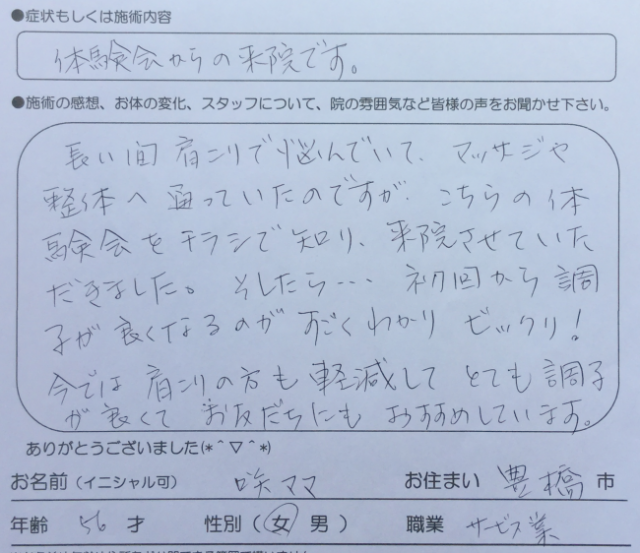 ●症状もしくは施術内容
体験会からの来院です。
●施術の感想、お体の変化、スタッフについて、院の雰囲気など皆様の声をお聞かせ下さい。
長い間 肩こりで悩んでいて、マッサージや
整体へ通っていたのですが、こちらの体
験会をチラシで知り、来院させていた
だきました。そしたら… 初回から調
子が良くなるのが すごくわかり ビックリ!
今では 肩こりの方も 軽減して とても 調子
が良くて お友だちにも おすすめしています。
ありがとうございました(*^▽^*)
お名前(イニシャル可) 咲ママ お住まい 豊橋 市
年齢 56 才 性別(女 男) 職業 サービス業